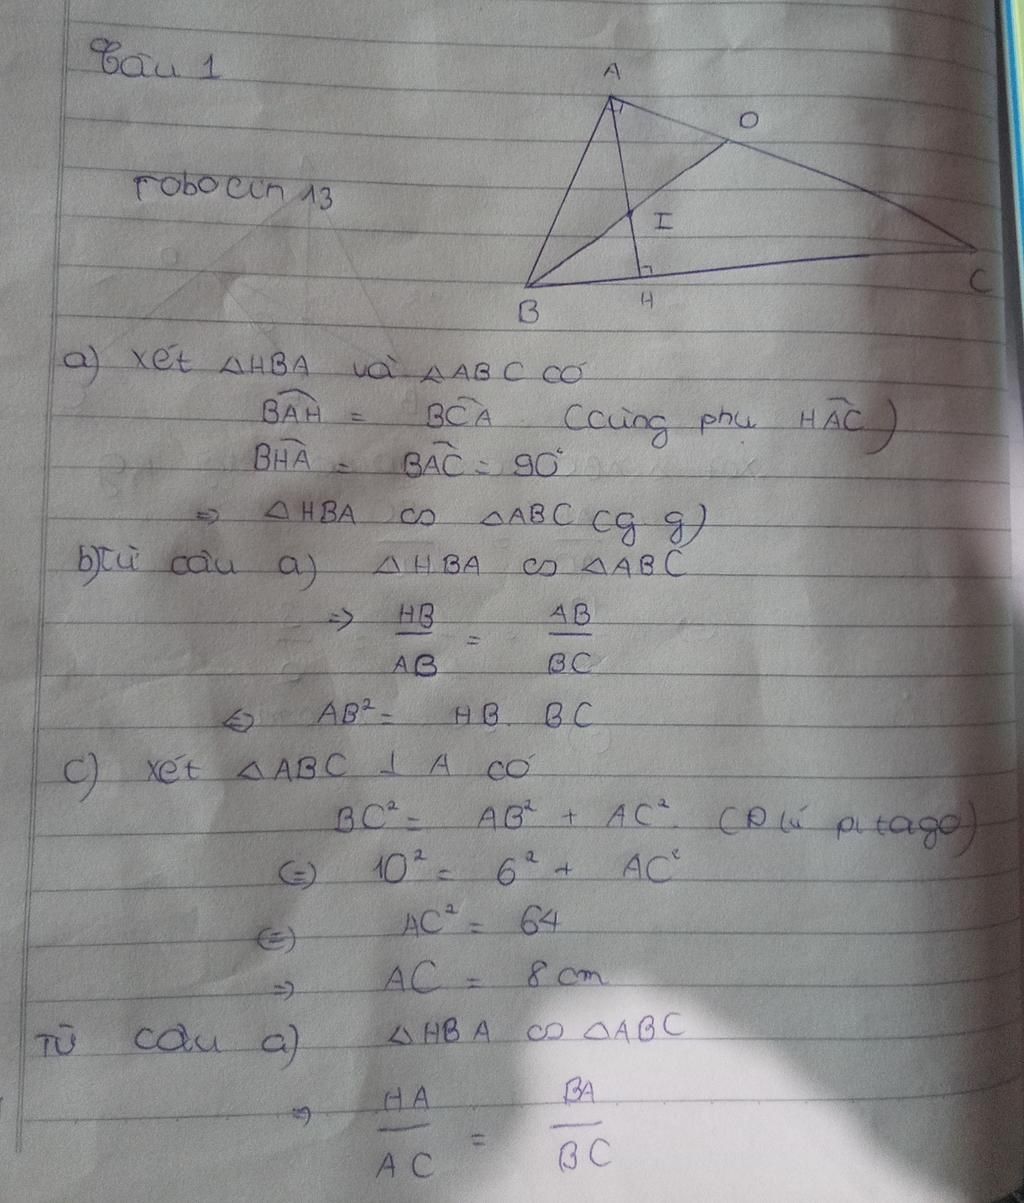 Câu 1
A
O
robocon 13
I
B
H
C
a) xét △HBA và △ABC có
BAH = BCA (cùng phụ HAC)
BHA = BAC = 90°
=> △HBA ∽ △ABC (g g)
b) Từ câu a) △HBA ∽ △ABC
=> HB/AB = AB/BC
<=> AB² = HB. BC
c) xét △ABC ⊥ A có
BC² = AB² + AC². (Đ lí pitago)
<=> 10² = 6² + AC²
<=> AC² = 64
=> AC = 8 cm
Từ câu a) △HBA ∽ △ABC
=> HA/AC = BA/BC